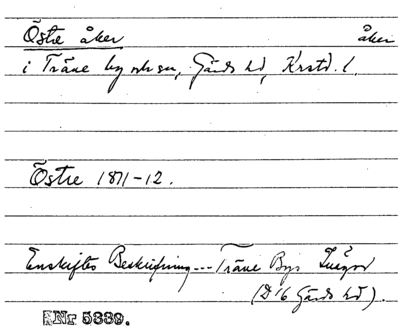 Östre åker åker
i Träne by och sn, Gärds hd, Krstd. l.
Östre 1811-12.
Enskiftes Beskrifning --- Träne Bys Inägor
(D16 Gärds hd).
Nr 5339.